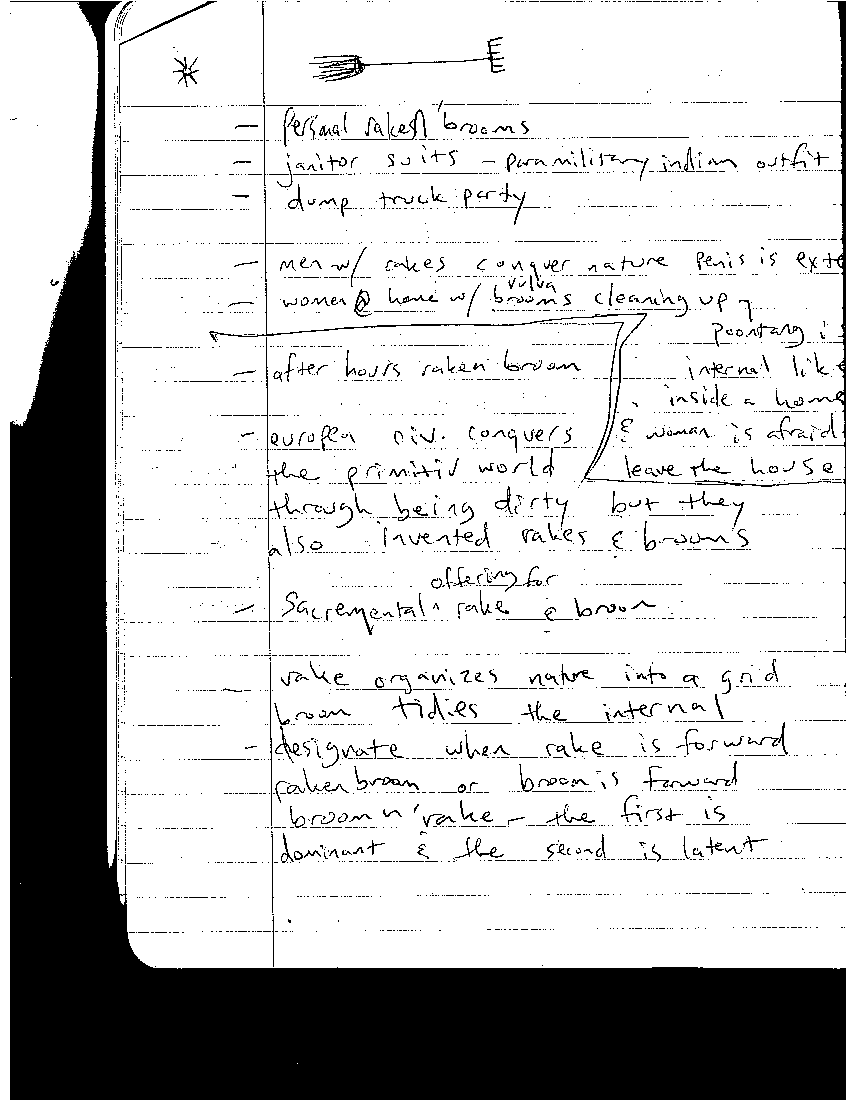 - Personal raken' brooms
- janitor suits - paramilitary indian outfit
- dump truck party
- men w/ rakes conquer nature penis is exte
vulva
- women @ home w/ brooms cleaning up
poontang is
internal like
inside a home
& woman is afraid
leave the house
- after hours raken broom
- europea civ. conquers
the primitiv world
through being dirty but they
also invented rakes & brooms
offering for
- Sacremental ^ rake & broom
rake organizes nature into a grid
broom tidies the internal
- designate when rake is forward
raken broom or broom is forward
broom n' rake - the first is
dominant & the second is latent